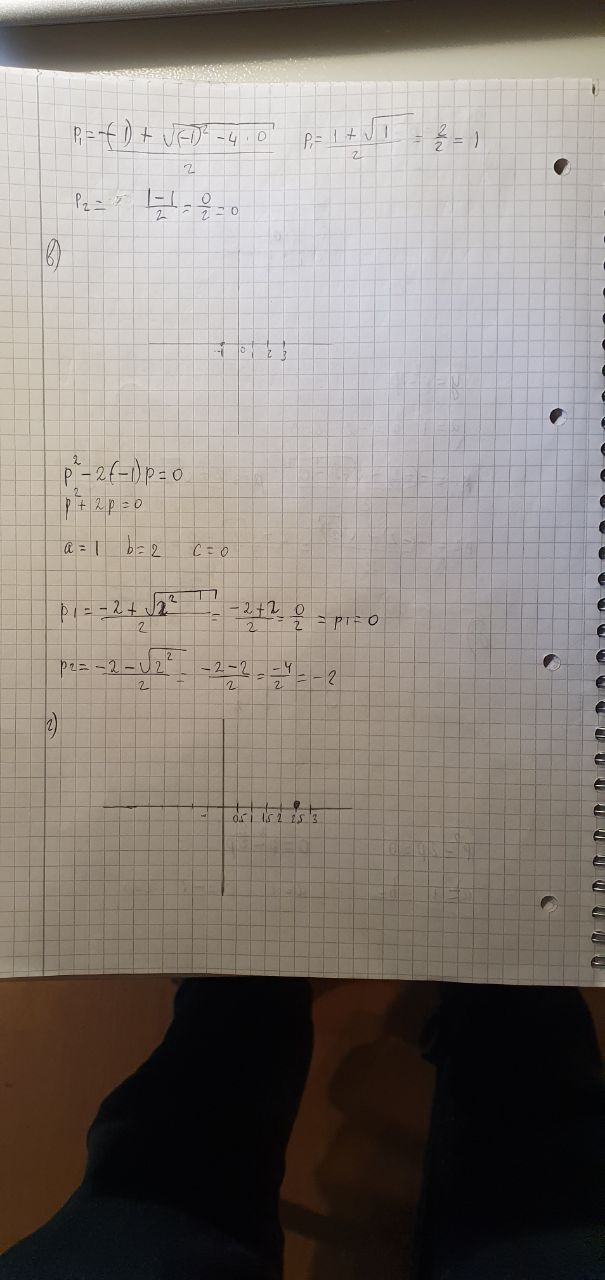 P₁ = -(-1) + √(-1)² - 4 · 0 / 2    P₁ = 1 + √1 / 2 = 2/2 = 1
P₂ = 1-1 / 2 = 0/2 = 0
в)
-1 0 1 2 3
p² - 2(-1)p = 0
p² + 2p = 0
a = 1 b = 2 c = 0
p1 = -2 + √2² / 2 = -2+2 / 2 = 0/2 = p1 = 0
p2 = -2 - √2² / 2 = -2-2 / 2 = -4/2 = -2
г)
0,5 1 1,5 2 2,5 3